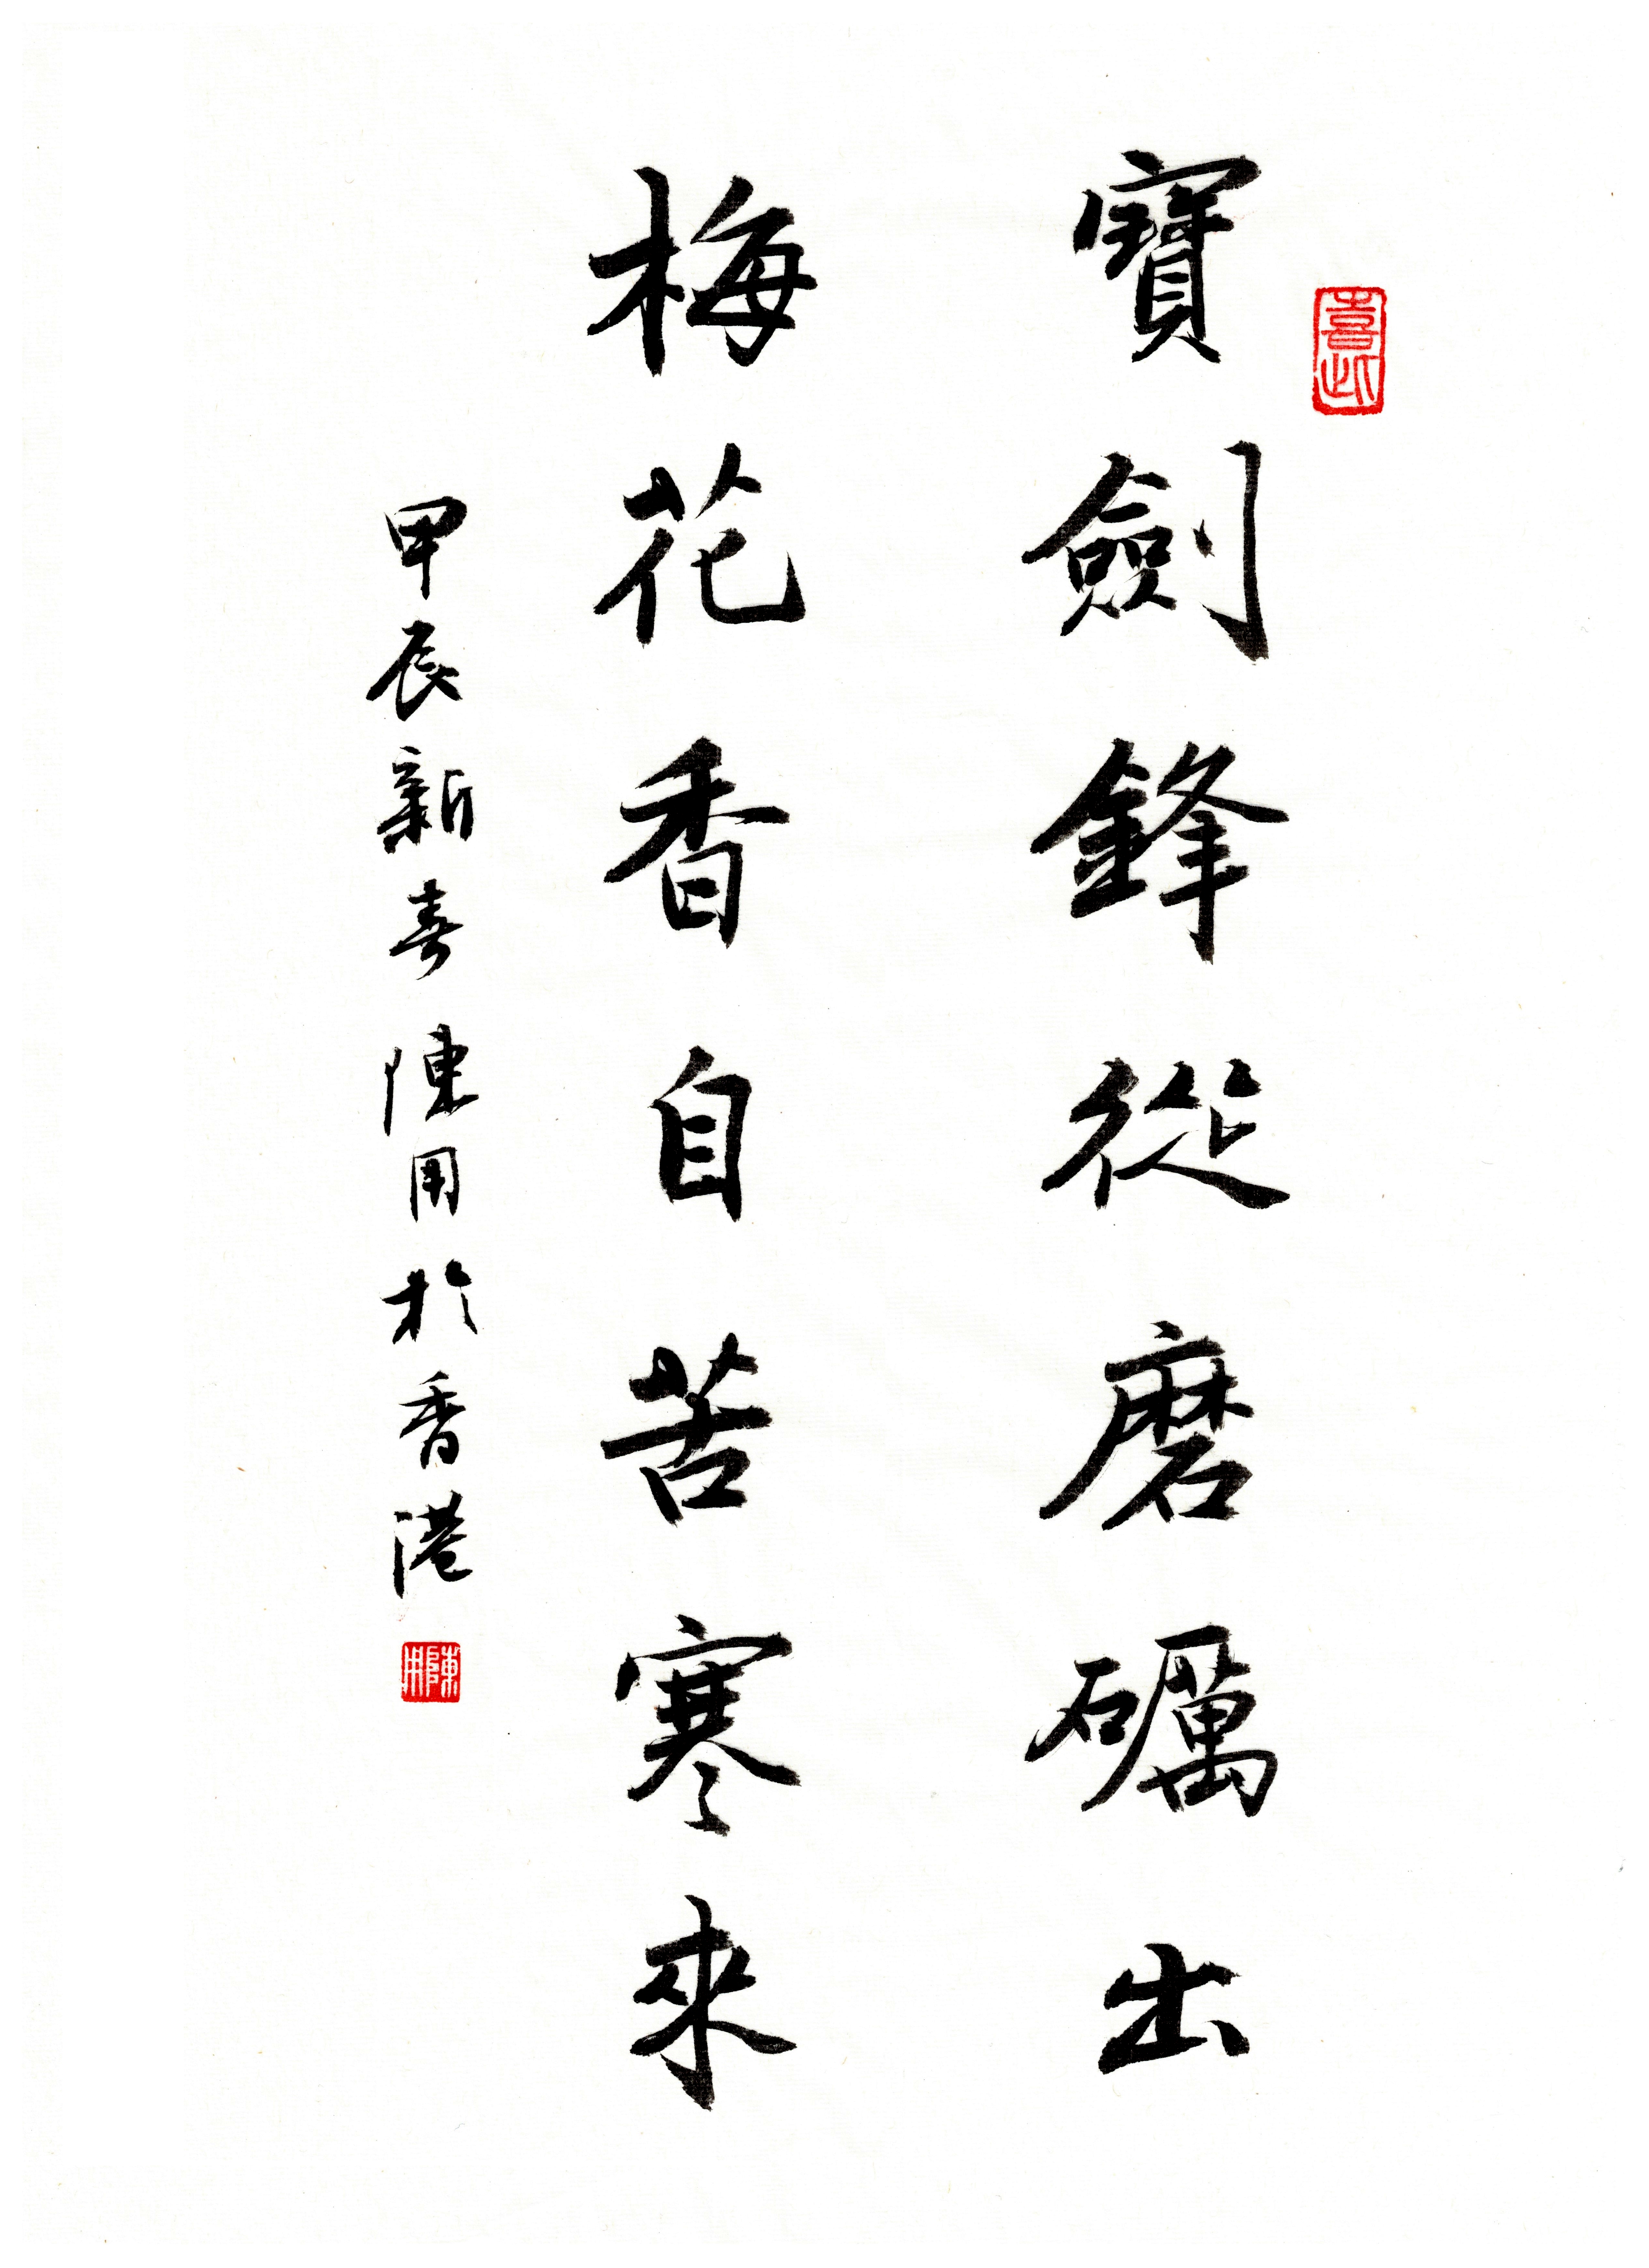 寶劍鋒從磨礪出
梅花香自苦寒來
甲辰新春陳用於香港